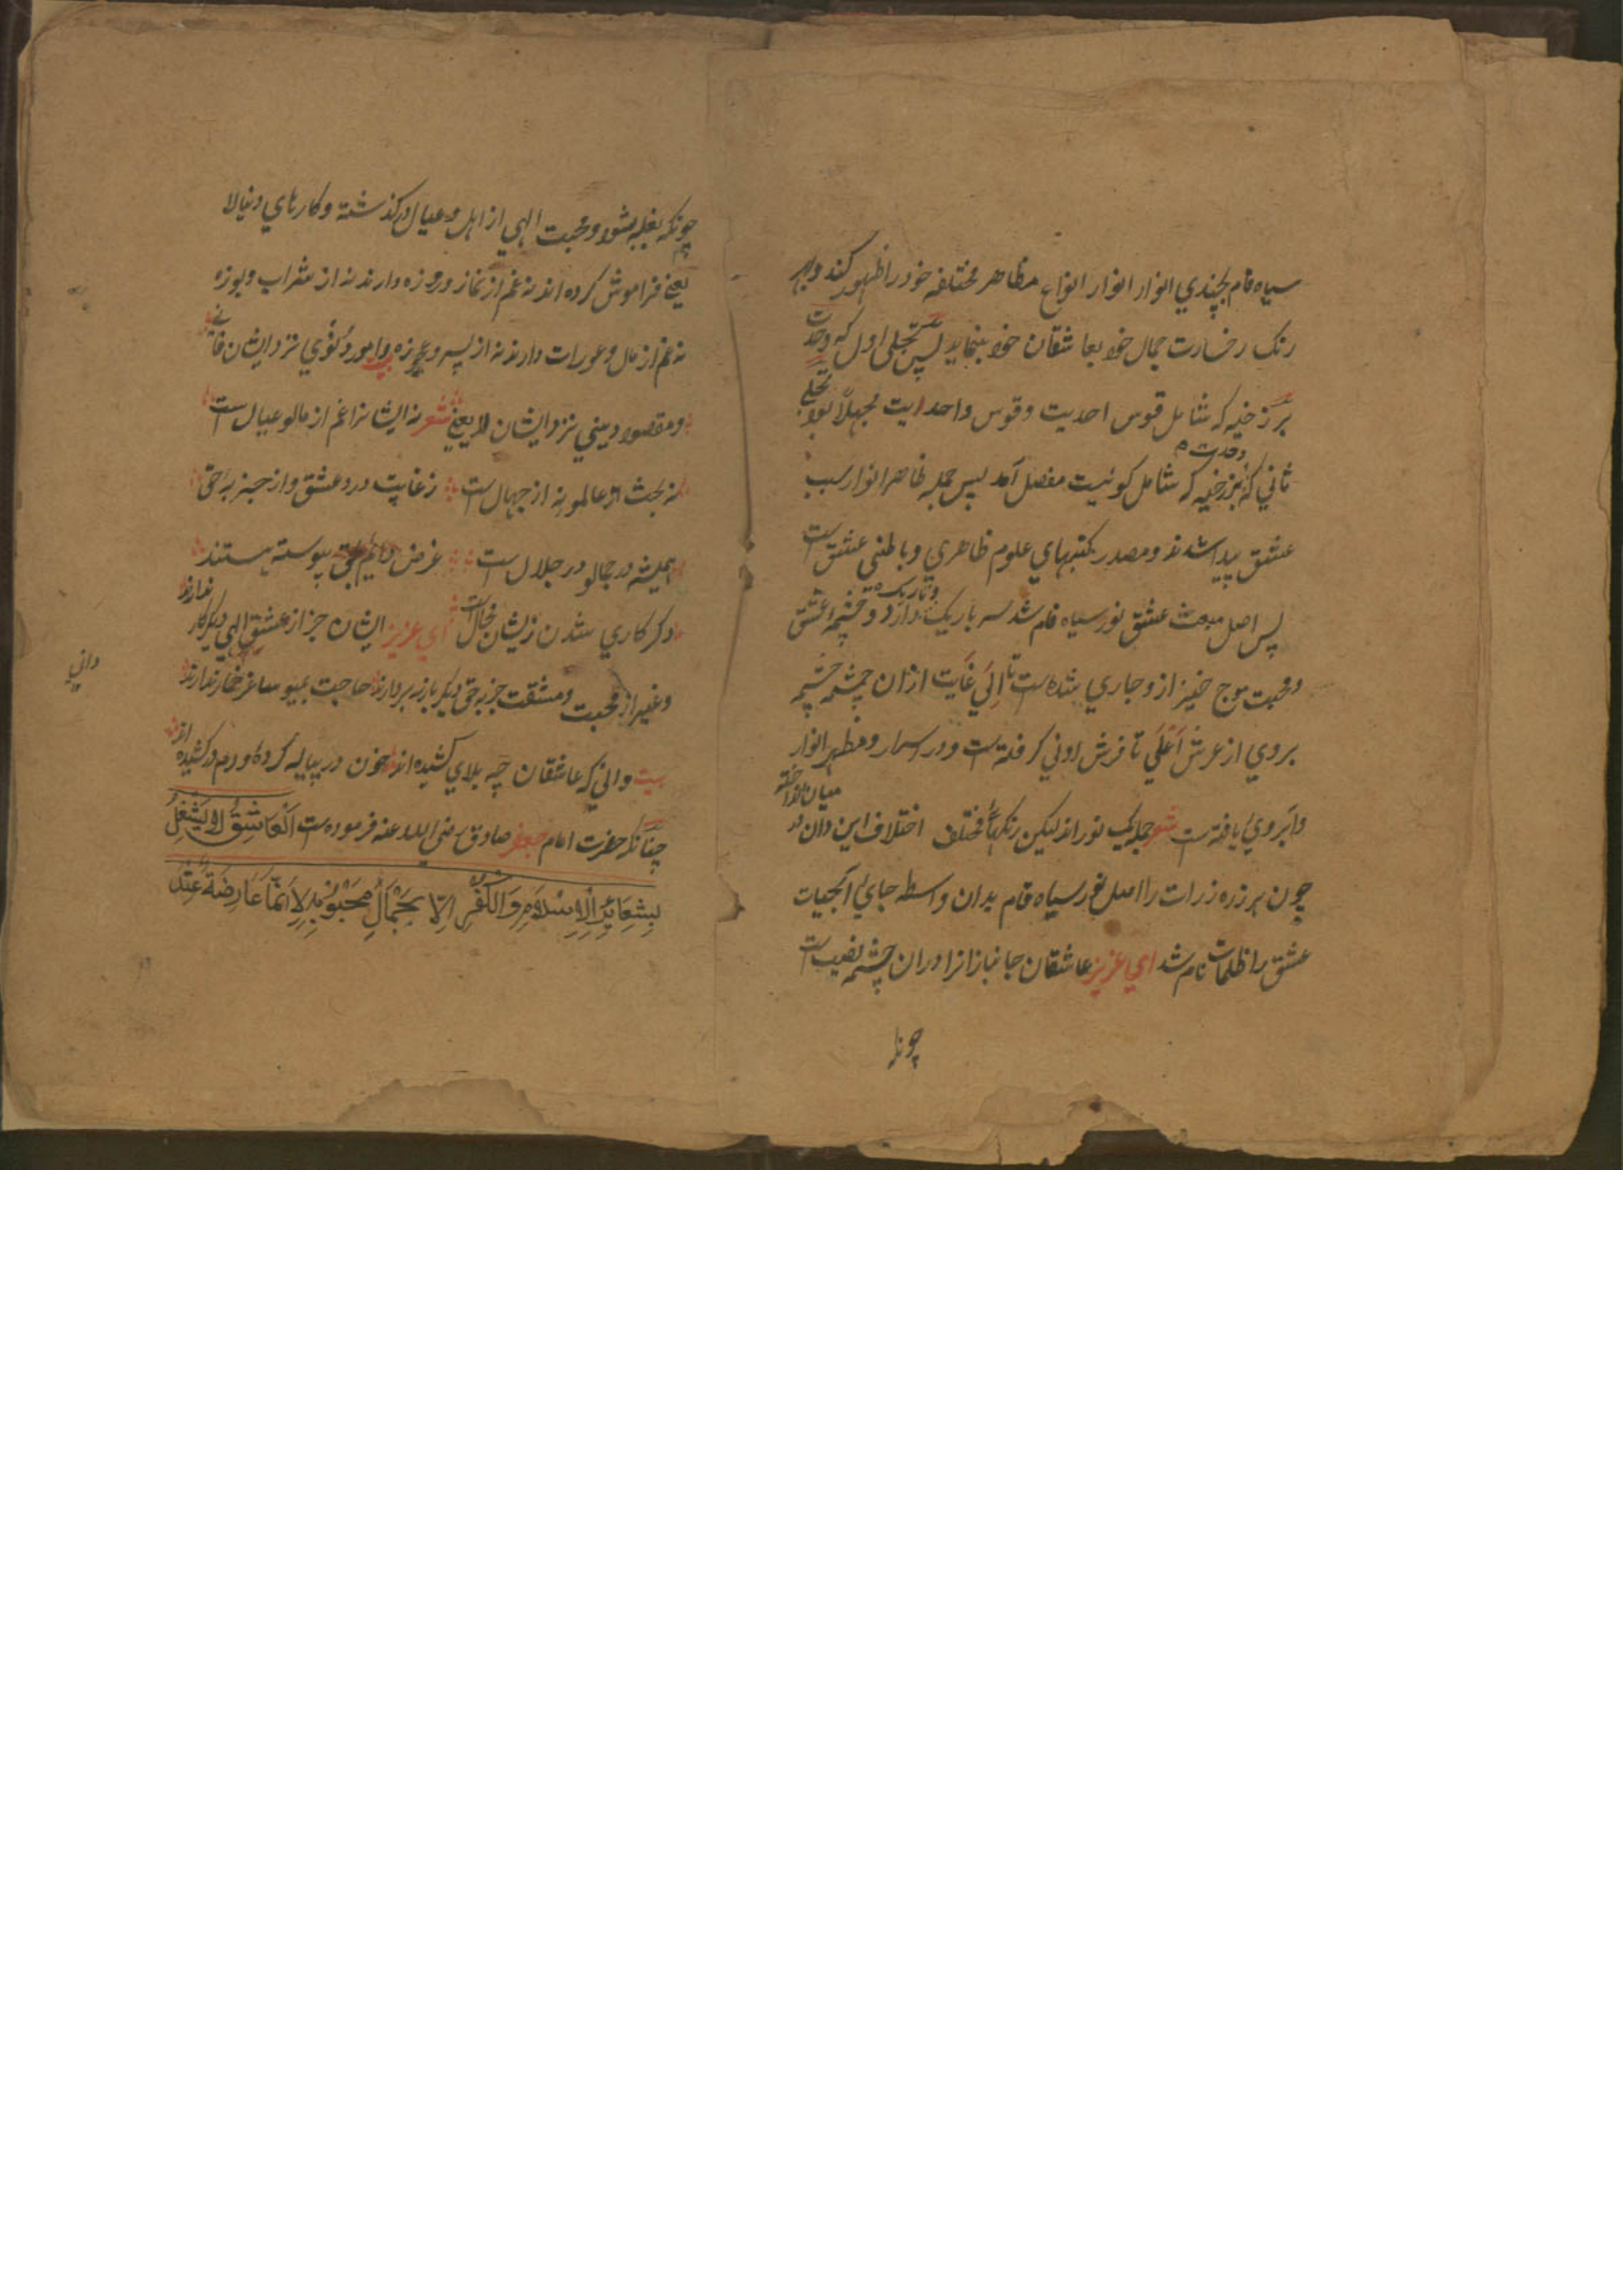 سیاه فام بچندي انوار انوار انواع مظاهر مختلفه خود را ظهور کند وبهر
رنک رخسارت جمال خود بعاشقان خود بنماید پس تجلی اول که وحدت
برزخیه که شامل قوس احدیت و قوس واحدایت بود تجلی
ثاني که برزخیه که شامل کونیت مفصل آمد پس جمله ظاهر انوار سبب
عشق پیدا شدند ومصدر کتبهاي علوم ظاهري و باطنی عشق است
پس اصل عشق نور سیاه فام شد سر باریک وتاریک دارد و چشمه عشق
ومحبت موج خیز ازو جاري شده ست تا الی غایت ازان چشمه چشمه
بروي از عرش اعلی تا فرش ادني کرفته ست ودر اسرار ومظهر انوار
وابروي یافته ست شعر جمله یک نور اند لیکن رنکهای مختلف اختلاف این دان در میان انداخته
چون هر ذره ذرات را اصل نور سیاه فام بدان واسطه جاي
عشق را ظلمات نام شد اي عزیز عاشقان جانباز انرا دران چشمه نصیب است
چونکه
چونکه بغلبه شود ومحبت الهي از اهل و عیال درکذشته وکارهاي دنیا لا
یعنی فراموش کرده اند نه غم از نماز وروزه دارند نه از شراب وبوزه
نه غم از مال وعورات دارند نه از پسر و نزد ایشان فانی
ومقصود دیني نزد ایشان لا یعنی شعر نه ایشانرا غم از مال و عیال ست
نه بحث از عالم و نه از جهال ست زغایت درد عشق واز جذبه حق
همیشه در جمال و در جلال ست غرض دایم بحق پیوسته هستند
دکر کاري شدن زیشان محال ست اي عزیز ایشان جز از عشق الهي دیکر کار ندارند
وغیر از محبت ومشقت جذبه حق دیکر بار نه بردارند حاجت بمی و ساغر خمار ندارند
بیت داني که عاشقان چه بلاي کشیده اند خون در پیاله کرده و دم درکشیده اند
چنانکه حضرت امام جعفر صادق رضی الله عنه فرموده ست اَلْعَاشِقُ لا یَشْغِلُ
بِشَعَائِرِ الْاِسْلَامِ وَالْکُفْرِ اِلّا بِجَمَالِ مَحْبُوْبِهِ لِاَنَّهَا عَارِضَةٌ عِنْدَ
داني